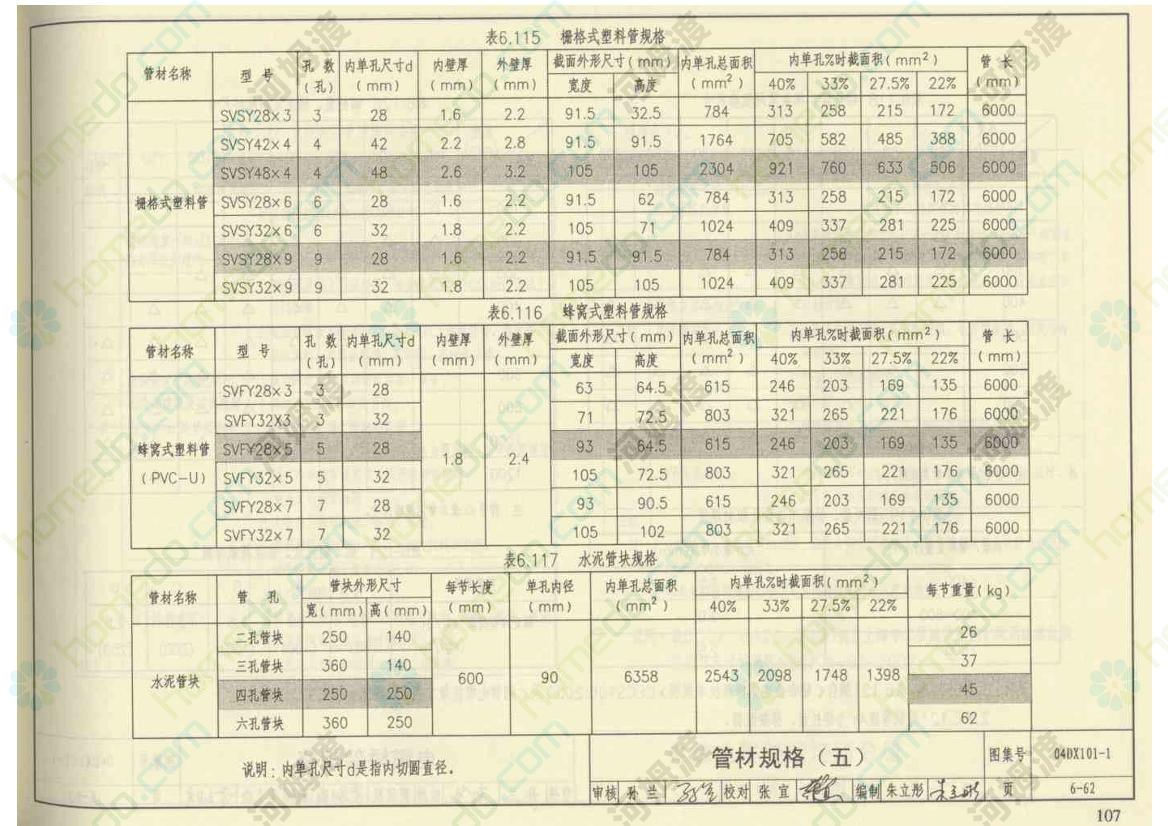 表6.115 栅格式塑料管规格
管材名称 型 号 孔 数(孔) 内单孔尺寸d(mm) 内壁厚(mm) 外壁厚(mm) 截面外形尺寸(mm) 内单孔总面积(mm²) 内单孔%时截面积(mm²) 管 长(mm)
宽度 高度 40% 33% 27.5% 22%
栅格式塑料管
SVSY28×3 3 28 1.6 2.2 91.5 32.5 784 313 258 215 172 6000
SVSY42×4 4 42 2.2 2.8 91.5 91.5 1764 705 582 485 388 6000
SVSY48×4 4 48 2.6 3.2 105 105 2304 921 760 633 506 6000
SVSY28×6 6 28 1.6 2.2 91.5 62 784 313 258 215 172 6000
SVSY32×6 6 32 1.8 2.2 105 71 1024 409 337 281 225 6000
SVSY28×9 9 28 1.6 2.2 91.5 91.5 784 313 258 215 172 6000
SVSY32×9 9 32 1.8 2.2 105 105 1024 409 337 281 225 6000
表6.116 蜂窝式塑料管规格
管材名称 型 号 孔 数(孔) 内单孔尺寸d(mm) 内壁厚(mm) 外壁厚(mm) 截面外形尺寸(mm) 内单孔总面积(mm²) 内单孔%时截面积(mm²) 管 长(mm)
宽度 高度 40% 33% 27.5% 22%
蜂窝式塑料管
(PVC-U)
1.8 2.4
SVFY28×3 3 28 63 64.5 615 246 203 169 135 6000
SVFY32X3 3 32 71 72.5 803 321 265 221 176 6000
SVFY28×5 5 28 93 64.5 615 246 203 169 135 6000
SVFY32×5 5 32 105 72.5 803 321 265 221 176 6000
SVFY28×7 7 28 93 90.5 615 246 203 169 135 6000
SVFY32×7 7 32 105 102 803 321 265 221 176 6000
表6.117 水泥管块规格
管材名称 管 孔 管块外形尺寸 每节长度(mm) 单孔内径(mm) 内单孔总面积(mm²) 内单孔%时截面积(mm²) 每节重量(kg)
宽(mm) 高(mm) 40% 33% 27.5% 22%
水泥管块
二孔管块 250 140 26
三孔管块 360 140 37
600 90 6358 2543 2098 1748 1398
四孔管块 250 250 45
六孔管块 360 250 62
说明：内单孔尺寸d是指内切圆直径。
管材规格（五） 图集号 04DX101-1
审核 孙 兰 校对 张 宜 编制 朱立彤 页 6-62
107
homedo.com 河姆渡